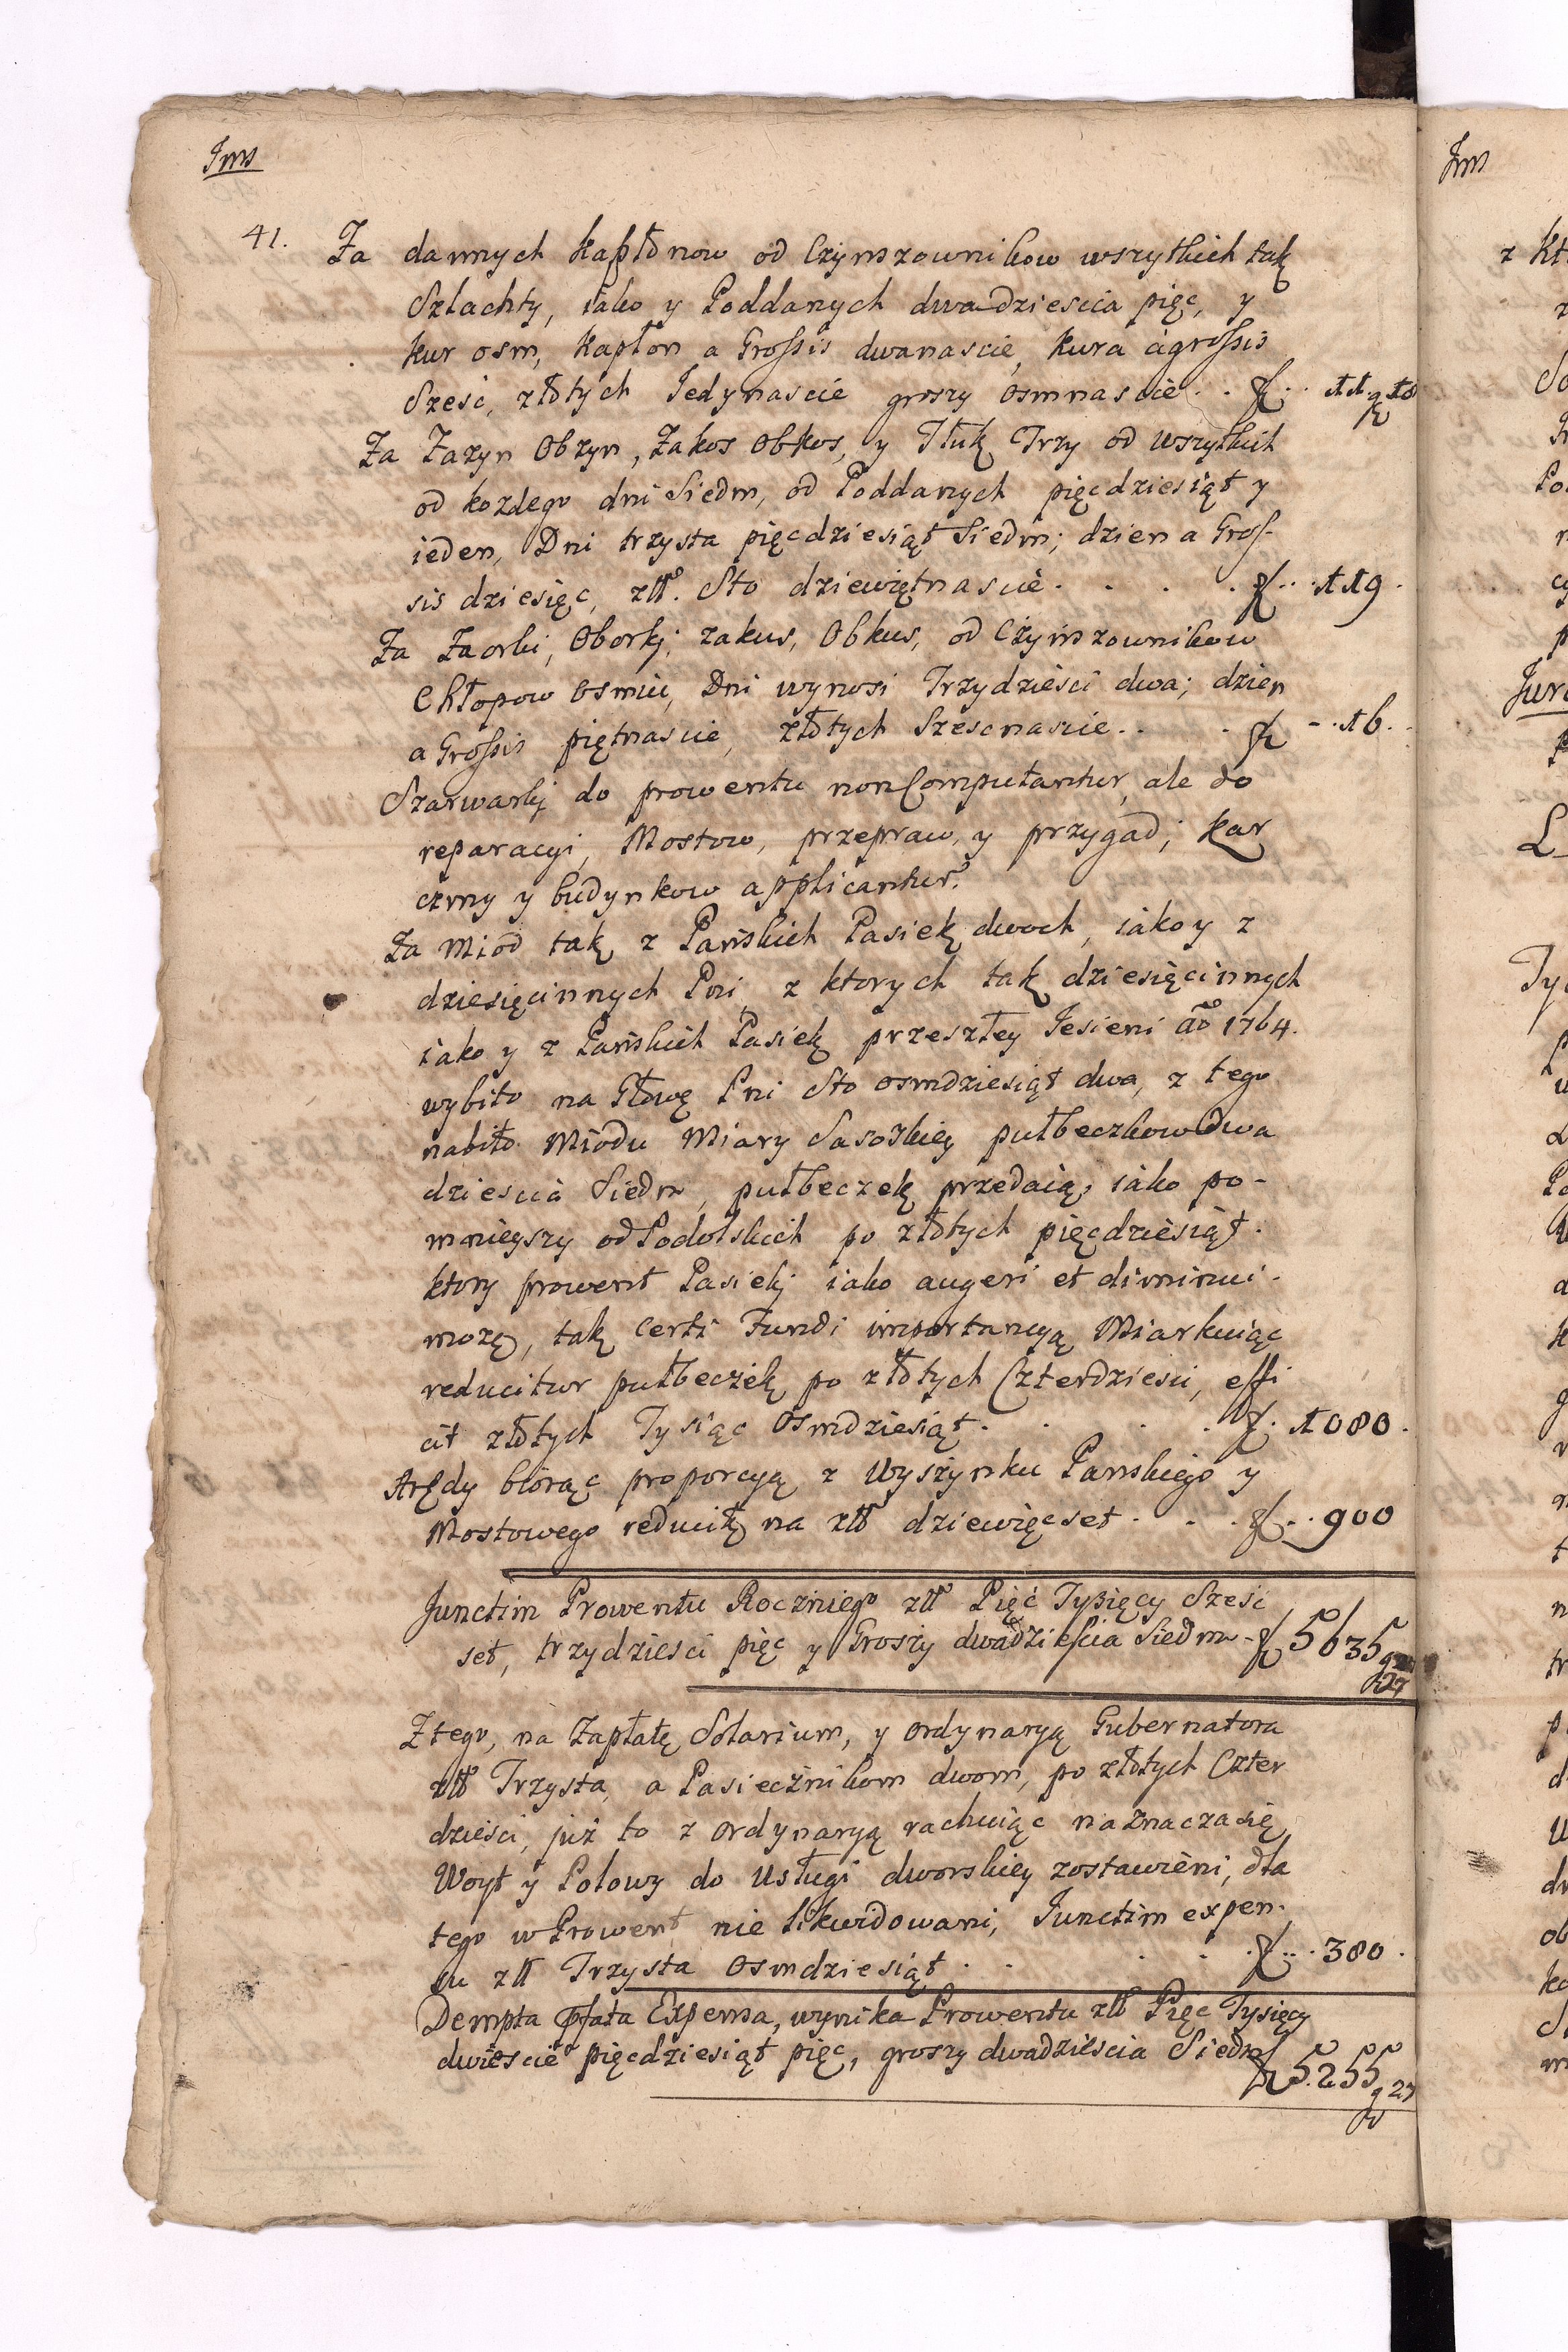 Jms
41. Za dannych Kapłonow od Czynszownikow wszytkich tak
Szlachty, iako y Poddanych dwadziescia pięc, y
kur osm, Kapłon a Grossis dwanascie, Kura a grossis
Szesć, złotych Jedynascie groszy osmnascie . . fl. 11. g 18
Za Zazyn Obzyn, Zakos Obkos, y Tłuk Trzy od wszytkich
od kozdego dni Siedm, od Poddanych pięcdziesiąt y
ieden, Dni trzysta pięcdziesiąt Siedm; dzien a Gros-
sis dziesięc, złł. Sto dziewiętnascie . . . . fl. . 119.
Za Zaorki, Oborki, zakus, Obkus, od Czynszownikow
Chłopow osmiu, Dni wynosi Trzydziesci dwa; dzien
a Grossis piętnascie, złotych Szesnascie . . . fl - . 16.
Szarwarki do prowentu non Computantur, ale do
reparacyi, Mostow, przepraw, y przygad; Kar
czmy y budynkow applicantur.
Za Miod tak z Pańskich Pasiek dwoch, iako y z
dziesięcinnych Pni, z ktorych tak dziesięcinnych
iako y z Pańskich Pasiek przeszłey Jesieni ao 1764.
wybito na Głowę Pni Sto osmdziesiąt dwa, z tego
nabito Miodu Miary Sasoskiey pułbeczkow dwa
dziescia Siedm, pułbeczek przedaią, iako po-
mnieyszy od Podolskich po złotych pięcdziesiąt.
ktory prowent Pasieki iako augeri et diminui.
może, tak certi Fundi importancyą Miarkuiąc
reducitur pułbeczek po złotych Czterdziesci, effi
cit złotych Tysiąc Osmdziesiąt . . . . fl. 1080.
Arędy biorąc proporcyą z Wyszynku Panskiego y
Mostowego reducitę na złł dziewięcset . . . fl . . 900
Junctim Prowentu Roczniego złł Pięć Tysięcy Szesc
set, trzydziesci pięc y Groszy dwadziescia Siedm - fl 5635 g 27
Z tego, na Zapłatę Solarium, y ordynaryą Gubernatora
złł Trzysta, a Pasiecznikom dwom, po złotych Czter
dziesci, już to z ordynaryą rachuiąc naznacza się
Woyt y Polowy do Usługi dworskiey zostawieni, dla
tego w Prowent nie likwidowani, Junctim expen-
su złł Trzysta Osmdziesiąt . . . . fl . . 380.
Dempta Expensa, wynika Prowentu złł Pięc Tysięcy
dwiescie pięcdziesiąt pięc, groszy dwadziescia Siedm fl 5255 g 27